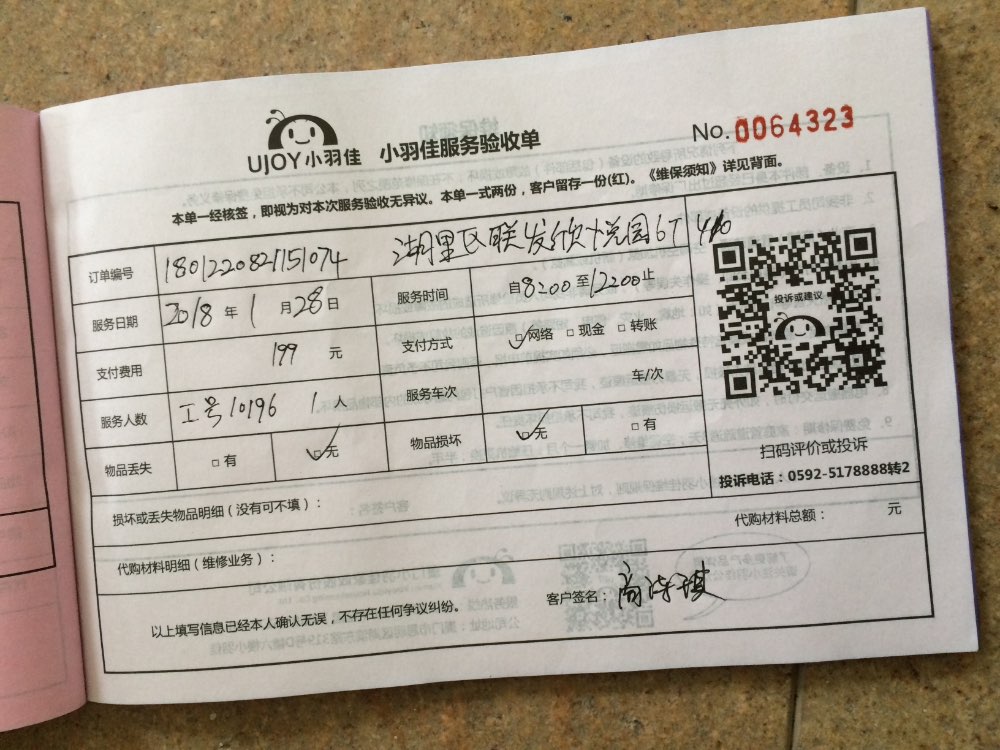 UJOY小羽佳 小羽佳服务验收单 No.0064323
本单一经核签，即视为对本次服务验收无异议。本单一式两份，客户留存一份(红)。《维保须知》详见背面。
订单编号 湖里区联发欣悦园67
服务日期 2018 年 1 月 28 日 服务时间 自8:00至12:00止
支付费用 199 元 支付方式 网络 现金 转账
服务人数 工号10196 1 人 服务车次 车/次
物品丢失 有 无 物品损坏 无 有
投诉或建议
扫码评价或投诉
投诉电话：0592-5178888转2
损坏或丢失物品明细（没有可不填）：
代购材料总额： 元
代购材料明细（维修业务）：
以上填写信息已经本人确认无误，不存在任何争议纠纷。
客户签名：